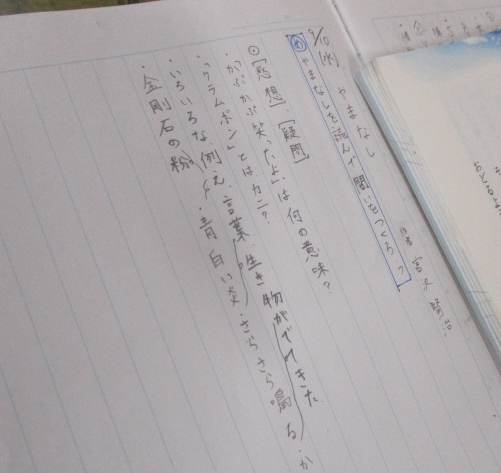 9/10(水) やまなし
作者 宮沢賢治
め やまなしを読んで問いをつくろう
◎[感想]、[疑問]
・かぷかぷ笑ったよ」は何の意味?
・「クラムボン」とは、カニ?
・いろいろな例え、言葉、生き物がでてきた
・青白い炎・さらさら鳴る・か
・金剛石の粉